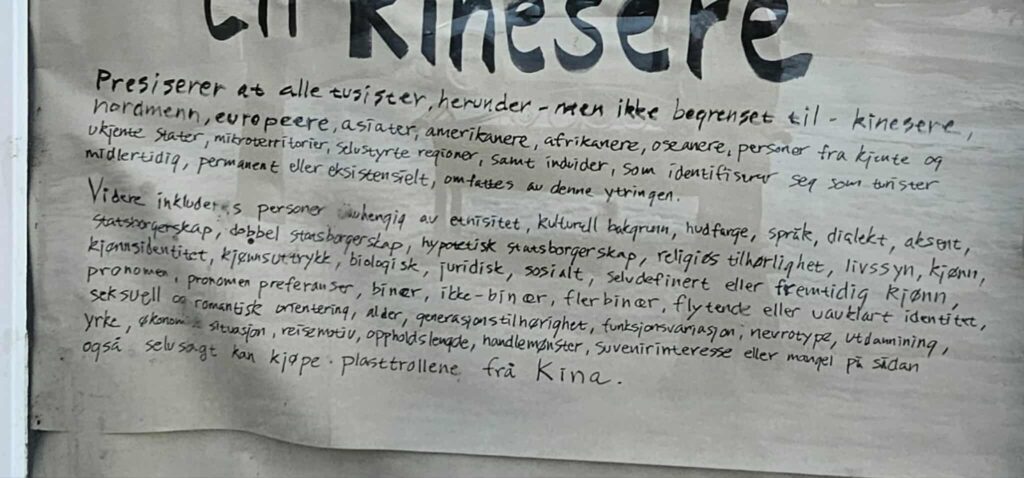 til kinesere
Presiserer at alle tusister, herunder - men ikke begrenset til - kinesere,
nordmenn, europeere, asiater, amerikanere, afrikanere, oseanere, personer fra kjente og
ukjente stater, mikroterritorier, selvstyrte regioner, samt individer, som identifiserer seg som turister
midlertidig, permanent eller eksistensielt, omfattes av denne ytringen.
Videre inkluderes personer uavhengig av etnisitet, kulturell bakgrunn, hudfarge, språk, dialekt, aksent,
statsborgerskap, dobbel statsborgerskap, hypotetisk statsborgerskap, religiøs tilhørlighet, livssyn, kjønn,
kjønnsidentitet, kjønnsuttrykk, biologisk, juridisk, sosialt, selvdefinert eller fremtidig kjønn,
pronomen, pronomen preferanser, binær, ikke-binær, flerbinær, flytende eller uavklart identitet,
seksuell og romantisk orientering, alder, generasjonstilhørighet, funksjonsvariasjon, nevrotype, utdanning,
yrke, situasjon, reisemotiv, oppholdslengde, handlemønster, suvenirinteresse eller mangel på sådan
også selvsagt kan kjøpe plasttrollene frå Kina.